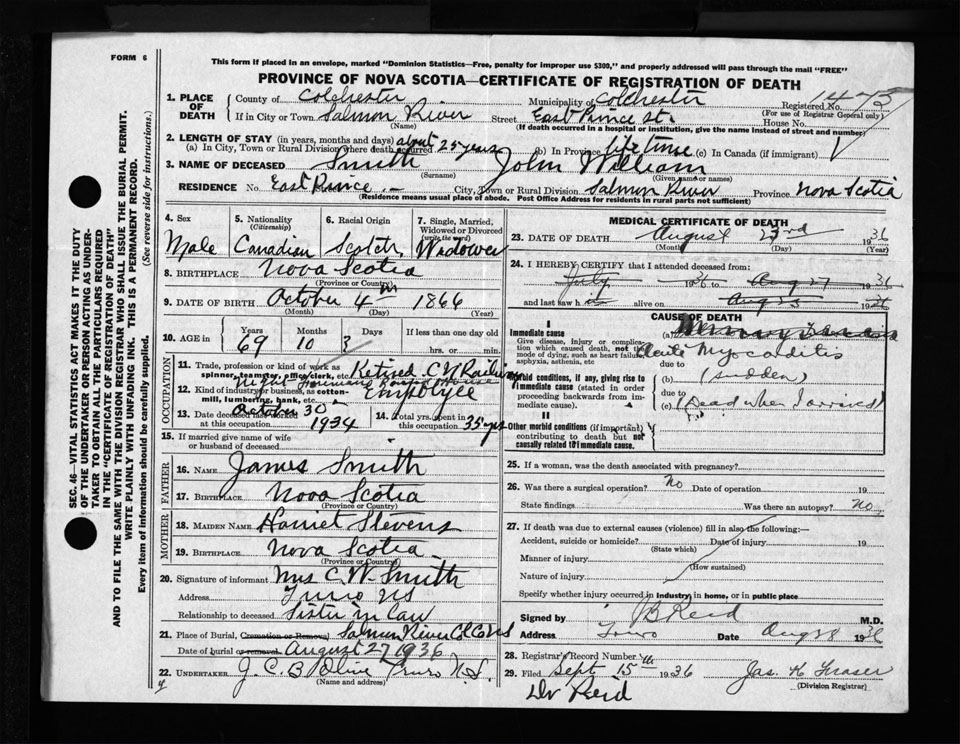 FORM 6
This form if placed in an envelope, marked "Dominion Statistics—Free, penalty for improper use $300," and properly addressed will pass through the mail "FREE"
PROVINCE OF NOVA SCOTIA—CERTIFICATE OF REGISTRATION OF DEATH
SEC. 46—VITAL STATISTICS ACT MAKES IT THE DUTY
OF THE UNDERTAKER OR PERSON ACTING AS UNDER-
TAKER TO OBTAIN ALL THE PARTICULARS REQUIRED
IN THE "CERTIFICATE OF REGISTRATION OF DEATH"
AND TO FILE THE SAME WITH THE DIVISION REGISTRAR WHO SHALL ISSUE THE BURIAL PERMIT.
WRITE PLAINLY WITH UNFADING INK. THIS IS A PERMANENT RECORD.
Every item of information should be carefully supplied. (See reverse side for instructions.)
1. PLACE OF DEATH County of Colchester Municipality of Colchester Registered No. 1475
(For use of Registrar General only)
If in City or Town Salmon River Street East Prince St. House No.
(Name) (If death occurred in a hospital or institution, give the name instead of street and number)
2. LENGTH OF STAY (in years, months and days)
(a) In City, Town or Rural Division where death occurred about 25 years (b) In Province life time (c) In Canada (if immigrant)
3. NAME OF DECEASED Smith John William
(Surname) (Given name or names)
RESIDENCE No. East Prince City, Town or Rural Division Salmon River Province Nova Scotia
(Residence means usual place of abode. Post Office Address for residents in rural parts not sufficient)
4. Sex 5. Nationality 6. Racial Origin 7. Single, Married, Widowed or Divorced
(Citizenship) (write the word)
Male Canadian Scotch Widower
8. BIRTHPLACE Nova Scotia
(Province or Country)
9. DATE OF BIRTH October 4th 1866
(Month) (Day) (Year)
10. AGE in Years Months Days If less than one day old
69 10 3 hrs. or min.
OCCUPATION
11. Trade, profession or kind of work as spinner, teamster, office clerk, etc. Retired C N Railway
12. Kind of industry or business, as cotton-mill, lumbering, bank, etc. Employee
13. Date deceased last worked at this occupation October 30 1934
14. Total yrs. spent in this occupation 35 yrs
15. If married give name of wife or husband of deceased
FATHER
16. NAME James Smith
17. BIRTHPLACE Nova Scotia
(Province or Country)
MOTHER
18. MAIDEN NAME Harriet Stevens
19. BIRTHPLACE Nova Scotia
(Province or Country)
20. Signature of informant Mrs C. W. Smith
Address Truro NS
Relationship to deceased Sister in Law
21. Place of Burial, Cremation or Removal Salmon River Col Co NS
Date of burial or removal August 27 1936
22. UNDERTAKER J. C. B. Olive Truro N.S.
(Name and address)
MEDICAL CERTIFICATE OF DEATH
23. DATE OF DEATH August 23rd 1936
(Month) (Day) (Year)
24. I HEREBY CERTIFY that I attended deceased from:
July 1936 to Aug 27 1936
and last saw h alive on Aug 23 1936
CAUSE OF DEATH
I
Immediate cause
Give disease, injury or complication which caused death, not the mode of dying, such as heart failure, asphyxia, asthenia, etc
(a) Acute Myocarditis
due to
Morbid conditions, if any, giving rise to immediate cause (stated in order proceeding backwards from immediate cause).
(b) (sudden)
due to
(c) (Dead when I arrived)
II
Other morbid conditions (if important) contributing to death but not causally related to immediate cause.
25. If a woman, was the death associated with pregnancy?
26. Was there a surgical operation? No Date of operation 19
State findings Was there an autopsy? No
27. If death was due to external causes (violence) fill in also the following:—
Accident, suicide or homicide? Date of injury 19
(State which)
Manner of injury
(How sustained)
Nature of injury
Specify whether injury occurred in industry, in home, or in public place
Signed by B Reid M.D.
Address Truro Date Aug 28 1936
28. Registrar's Record Number
29. Filed Sept 15th 1936 Jas. H Fraser
(Division Registrar)
Dr Reid